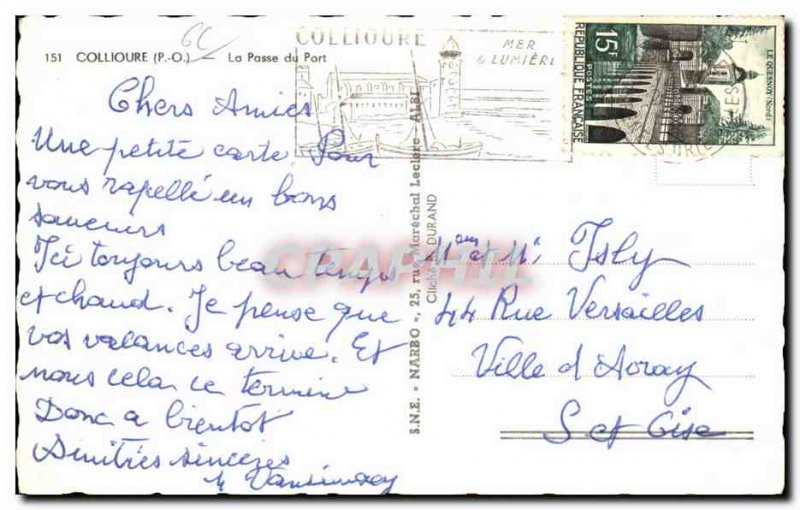 151 COLLIOURE (P.-O.) — La Passe du Port
COLLIOURE
MER
& LUMIÈRE
15F
POSTES
RÉPUBLIQUE FRANÇAISE
LE QUESNOY (Nord)
Chers Amies
Une petite carte Pour
vous rapellé un bons
souvenirs
Ici toujours beau temps
et chaud. Je pense que
vos valances arrive. Et
nous cela ce termine
Donc a bientot
Amitiés sincères
S.N.E. « NARBO », 25, rue Maréchal Leclerc - ALBI
Cliché A. DURAND
CPAPHIL
Mme et Mr Isly
44 Rue Versailles
Ville d Avray
S et Oise